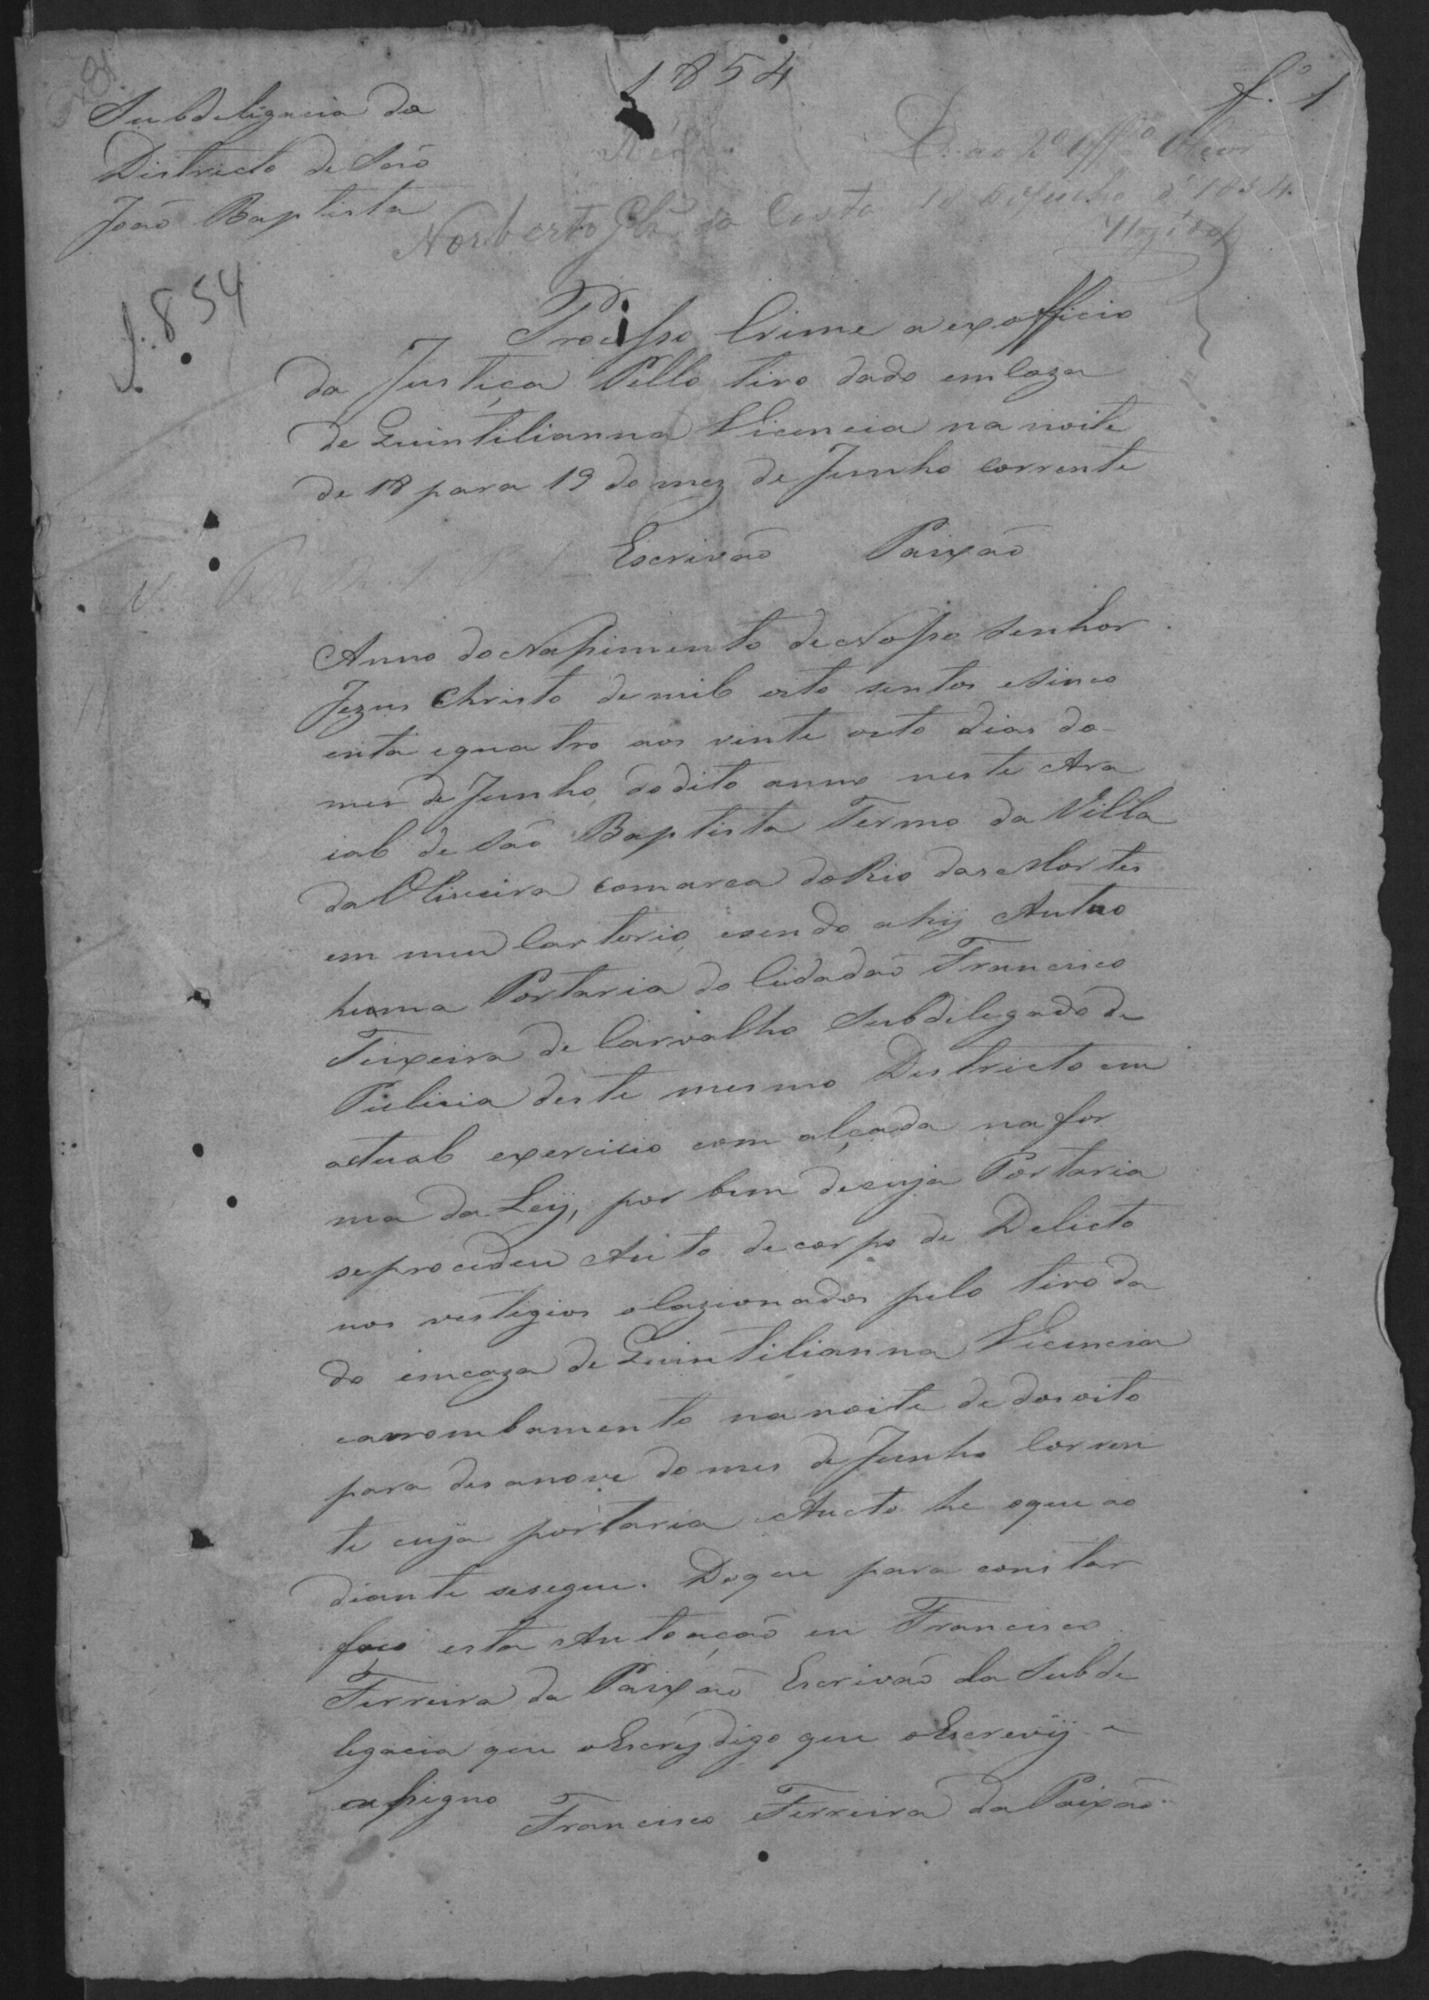 1854
f.º 1
Subdeligacia do
Districto de São
João Baptista
D. ao 2º Offº
de Julho d' 1854
Norberto da Costa
1854
Processo Crime a exofficio
da Justiça Pello tiro dado em Caza
de Quintilianna Vicencia na noite
de 18 para 19 do mez de Junho corrente
Escrivão Paixão
Anno do Nassimento de Nosso Senhor
Jezus Christo de mil oito sentos e sinco
enta e quatro aos vinte oito dias do
mes de Junho do dito anno neste Ara
ial de São Baptista Termo da Villa
da Oliveira comarca do Rio das Mortes
em meu Cartorio, e sendo ahij Autuo
huma Portaria do Cidadão Francisco
Teixeira de Carvalho Subdelegado de
Pulicia deste mesmo Districto em
actual exercicio com alçada na for
ma da Leij, por bem de cuja Portaria
se procedeu Auto de corpo de Delicto
nos vestigios olazionados pelo tiro da
do em caza de Quintilianna Vicencia
e arrombamento na noite de dosoito
para desanove do mes de Junho Corren
te cuja portaria e Aucto he o que ao
diante se segue. Do que para constar
faço esta Autoação eu Francisco
Ferreira da Paixão Escrivão da Subde
legacia que o Escrevj digo que o Escrevij e
assigno
Francisco Ferreira da Paixão